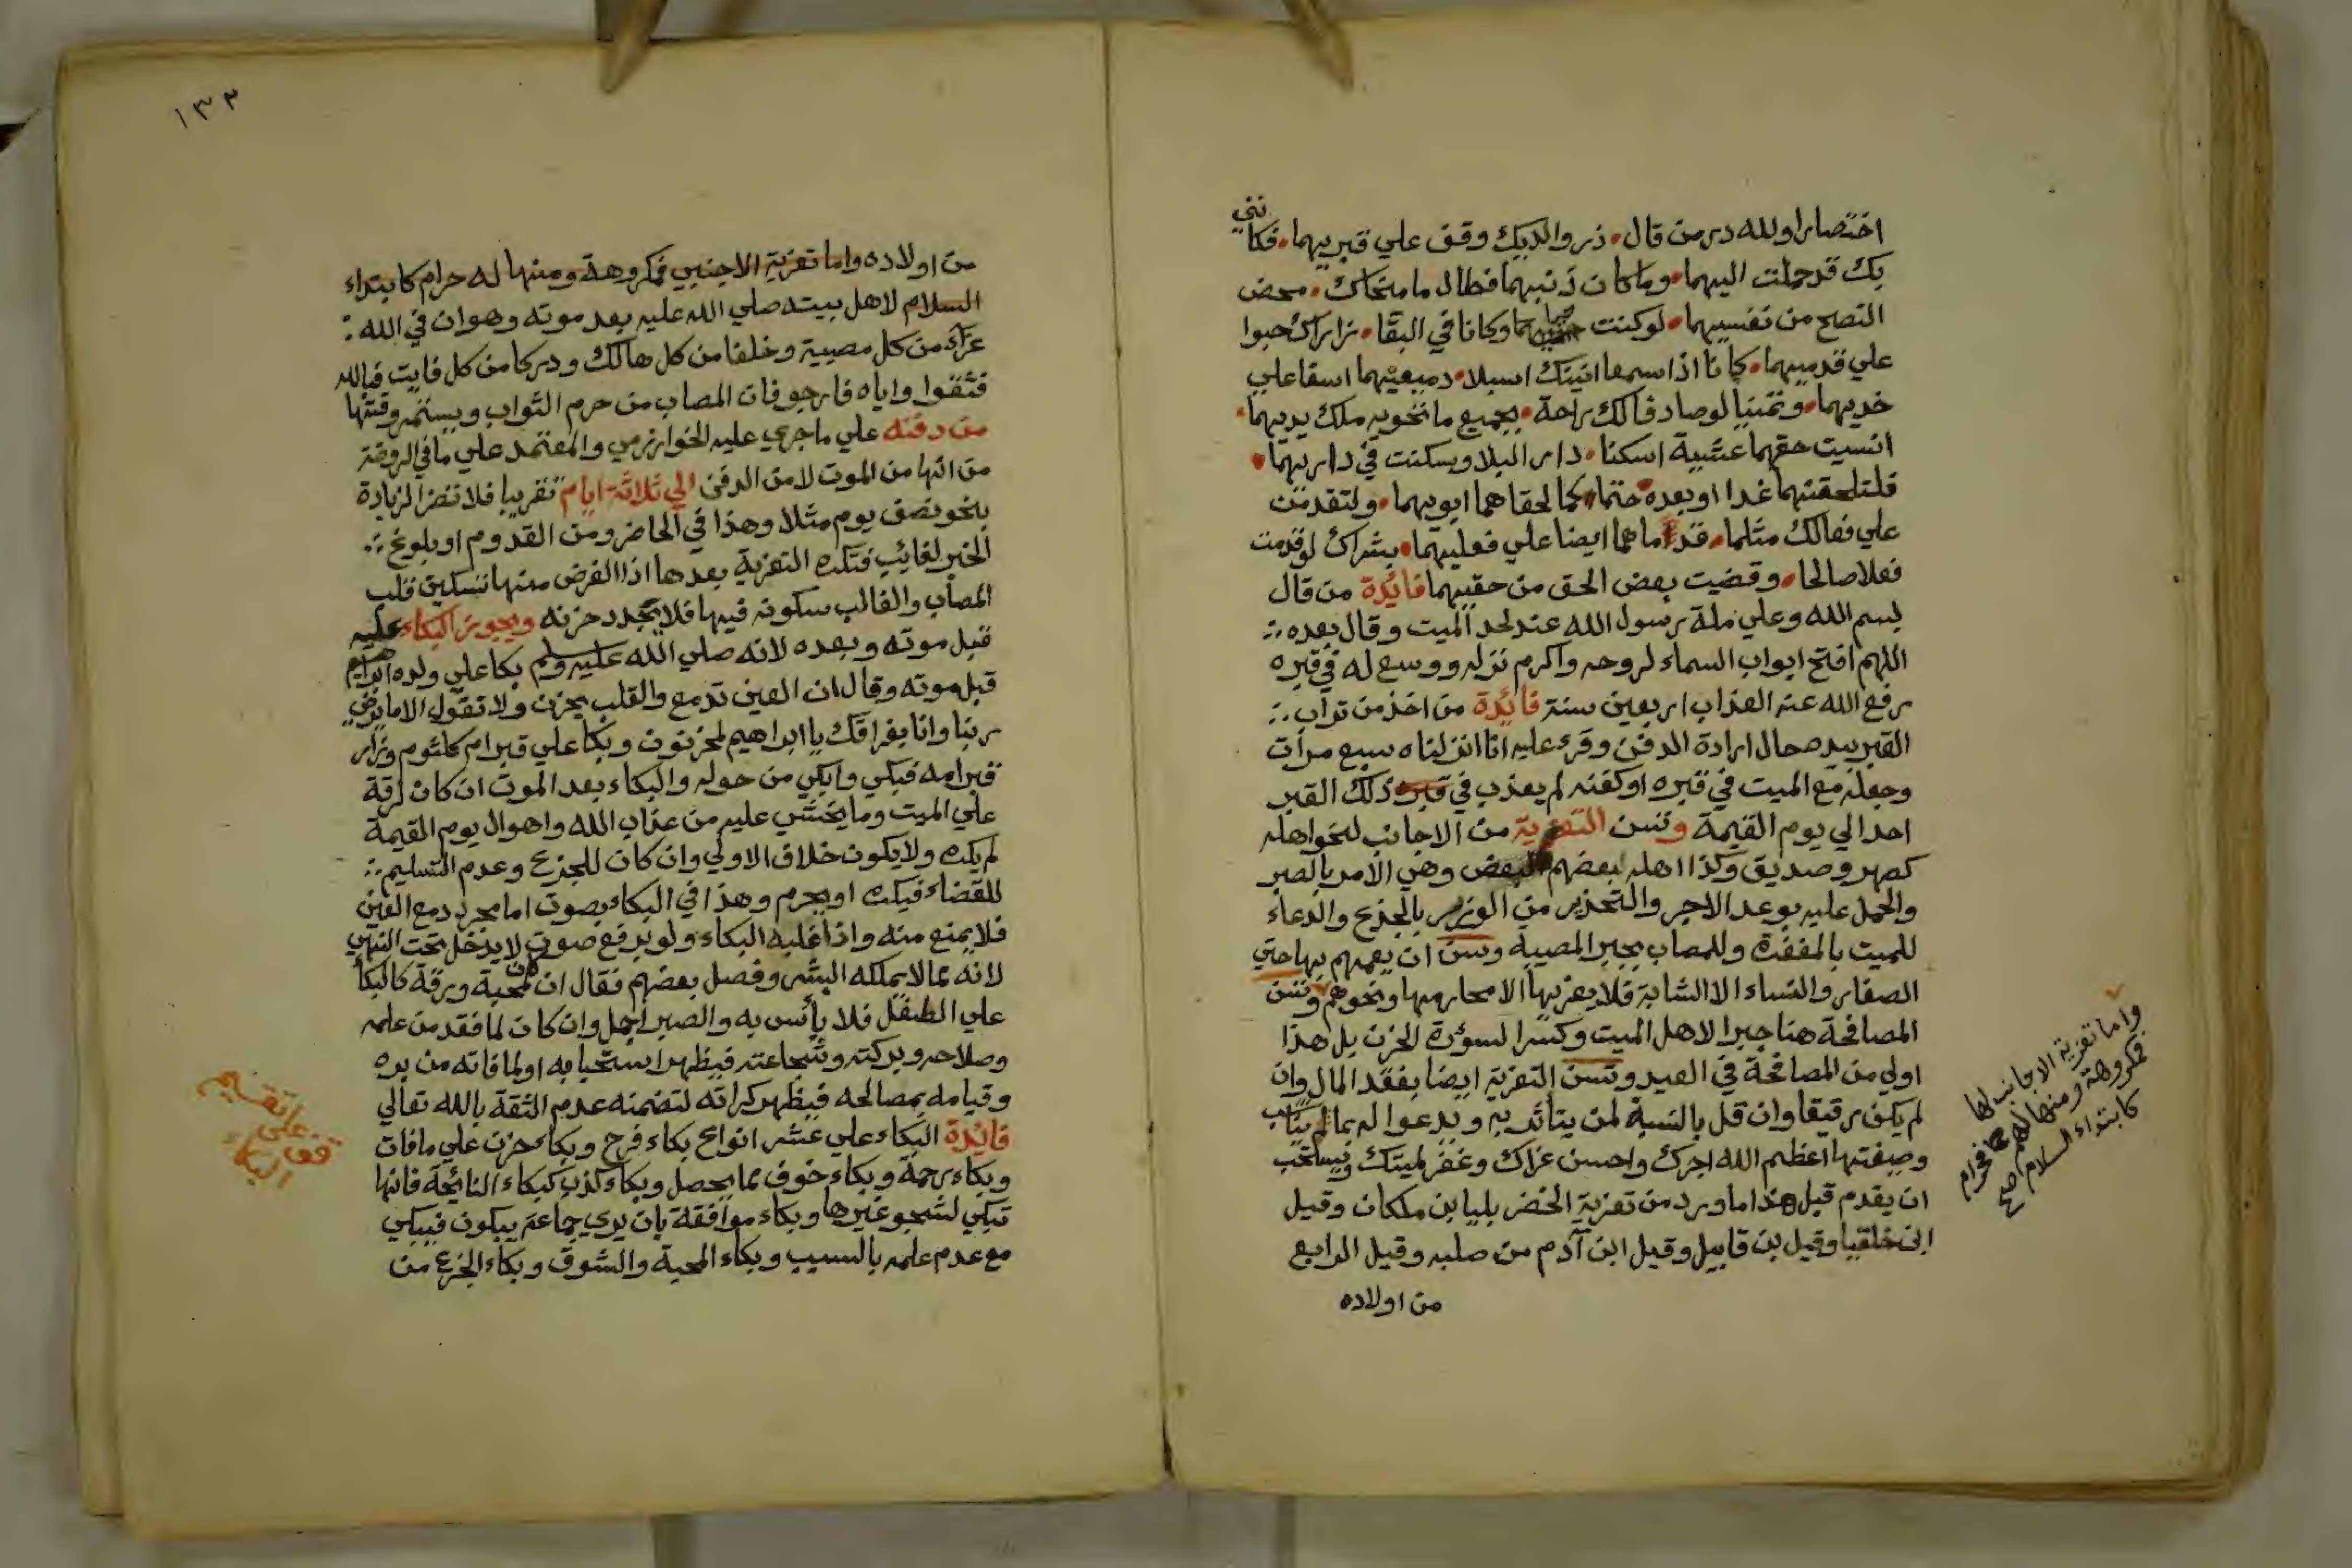 اختصارا ولله در من قال • زر والديك وقف علي قبريهما • فكانني
بك قد حملت اليهما • وما كان ذنبهما فطال ما منحاك • محض
النصح من نفسيهما • لو كنت وكانا في البقا • زاراك حبوا
علي قدميهما • كانا اذا سمعا انينك اسبلا • دمعيهما اسفا علي
خديهما • وتمنيا لو صادفا لك راحة • بجميع ما تحويه ملك يديهما •
انسيت حقهما عشية اسكنا • دار البلا وسكنت في داريهما •
فلتلحقنهما غدا او بعده حتما • كما لحقا هما ابويهما • ولتقدمن
علي فعالك مثلما • قدما هما ايضا علي فعليهما • بشراك لو قدمت
فعلا صالحا • وقضيت بعض الحق من حقيهما فائدة من قال
بسم الله وعلي ملة رسول الله عند لحد الميت وقال بعده
اللهم افتح ابواب السماء لروحه واكرم نزله ووسع له في قبره
رفع الله عنه العذاب اربعين سنة فائدة من اخذ من تراب
القبر بيده حال ارادة الدفن وقرء عليه انا انزلناه سبع مرات
وجعله مع الميت في قبره او كفنه لم يعذب في قبره ذلك القبر
احد الي يوم القيمة وتسن التعزية من الاجانب لنحو اهله
كصهر وصديق وكذا اهله بعضهم البعض وهي الامر بالصبر
والحمل عليه بوعد الاجر والتحذير من الوزر بالجذع والدعاء
للميت بالمغفرة وللمصاب بجبر المصيبة وسن ان يعمهم بها حتي
الصغار والنساء الا الشابة فلا يعزيها الا محارمها ونحوهم وتسن
المصافحة هنا جبرا لاهل الميت وكسرا لسورة الحزن بل هذا
اولي من المصافحة في العيد وتسن التعزية ايضا بفقد المال وان
لم يكن رقيقا وان قل بالنسبة لمن يتاثر به ويدعوا له بما يناسب
وصيغتها اعظم الله اجرك واحسن عزاك وغفر لميتك ويستحب
ان يقدم قبل هذا ما ورد من تعزية الخضر بليا بن ملكان وقيل
ابن خلقيا وقيل بن قابيل وقيل ابن آدم من صلبه وقيل الرابع
من اولاده
واما تعزية الاجانب لها
فمكروهة ومنها لهم فحرام
كابتداء السلام اصح
١٣٣
من اولاده واما تعزية الاجنبي فمكروهة ومنها له حرام كابتداء
السلام لاهل بيته صلي الله عليه بعد موته وهو ان في الله
عزاء من كل مصيبة وخلفا من كل هالك ودركا من كل فايت فبالله
فثقوا واياه فارجو فان المصاب من حرم الثواب ويستمر وقتها
من دفنه علي ما جري عليه الخوارزمي والمعتمد علي ما في الروضة
من انها من الموت لا من الدفن الي ثلاثة ايام تقريبا فلا تضر الزيادة
بنحو نصف يوم مثلا وهذا في الحاضر ومن القدوم او بلوغ
الخبر لغائب فتكره التعزية بعدها اذا الغرض منها تسكين قلب
المصاب والغالب سكونه فيها فلا يجدد حزنه ويجوز البكاء عليه
قبل موته وبعده لانه صلي الله عليه وسلم بكا علي ولده ابراهيم
قبل موته وقال ان العين تدمع والقلب يحزن ولا تقول الا ما يرضي
ربنا وانا بفراقك يا ابراهيم لمحزنون وبكا علي قبر ام كلثوم وزار
قبر امه فبكي وابكي من حوله والبكاء بعد الموت ان كان لرقة
علي الميت وما يخشي عليه من عذاب الله واهوال يوم القيمة
لم يكره ولا يكون خلاف الاولي وان كان للجزع وعدم التسليم
للقضاء فيكره او يحرم وهذا في البكاء بصوت اما مجرد دمع العين
فلا يمنع منه واذا غلبه البكاء ولو برفع صوت لا يدخل تحت النهي
لانه مما لا يملكه البشر وفصل بعضهم فقال ان كان لمحبة ورقة كالبكا
علي الطفل فلا بأس به والصبر اجمل وان كان لما فقد من علمه
وصلاحه وبركته وشجاعته فيظهر استحبابه او لما فاته من بره
وقيامه بمصالحه فيظهر كراته لتضمنه عدم الثقة بالله تعالي
فائدة البكاء علي عشر انواع بكاء فرح وبكاء حزن علي مافات
وبكاء رحمة وبكاء خوف مما يحصل وبكاء كذب كبكاء النائحة فانها
تبكي لشجو غيرها وبكاء موافقة بان يري جماعة يبكون فيبكي
مع عدم علمه بالسبب وبكاء المحبة والشوق وبكاء الجزع من
قف علي تقسيم
البكاء